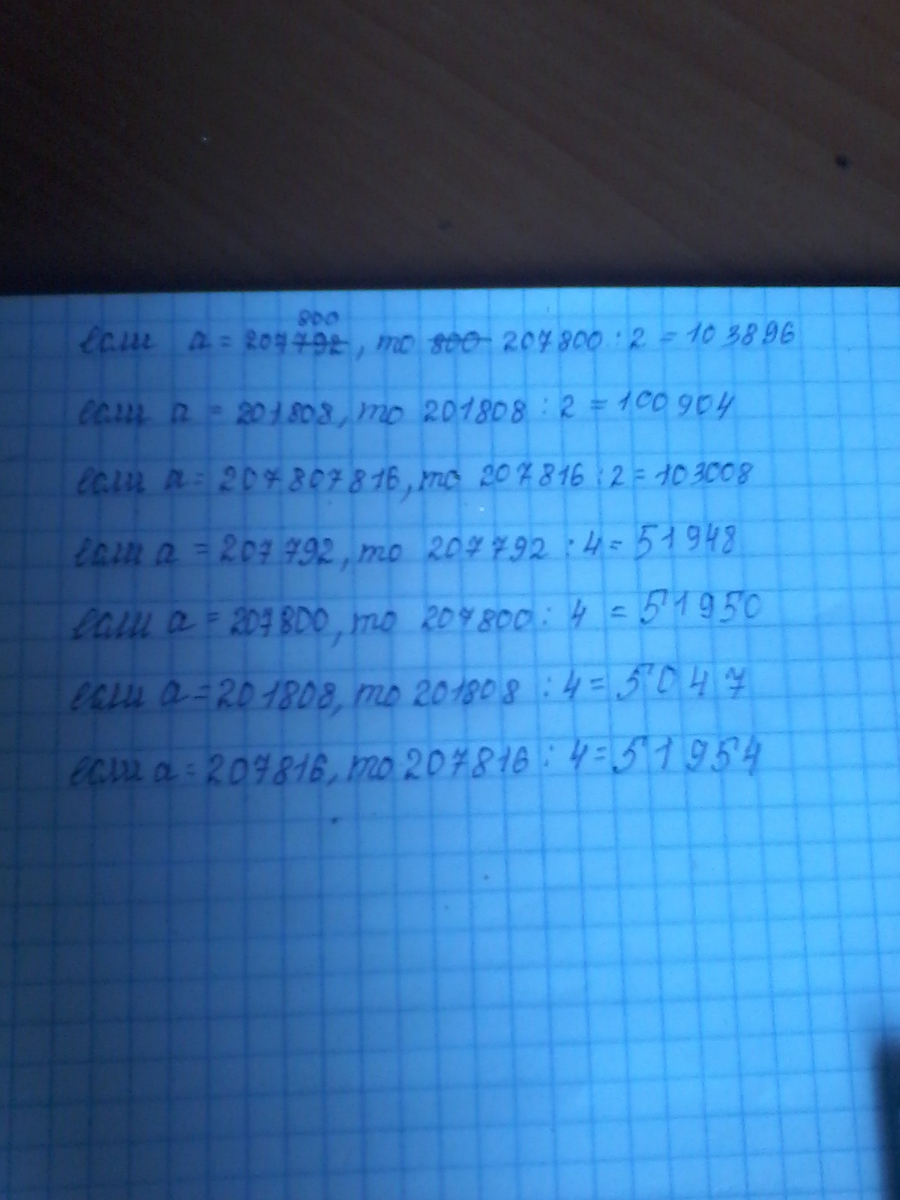 если а = 207792 800, то 800 207800 : 2 = 103896
если а = 201808, то 201808 : 2 = 100904
если а = 207807816, то 207816 : 2 = 103008
если а = 207792, то 207792 : 4 = 51948
если а = 207800, то 207800 : 4 = 51950
если а = 201808, то 201808 : 4 = 5047
если а = 207816, то 207816 : 4 = 51954